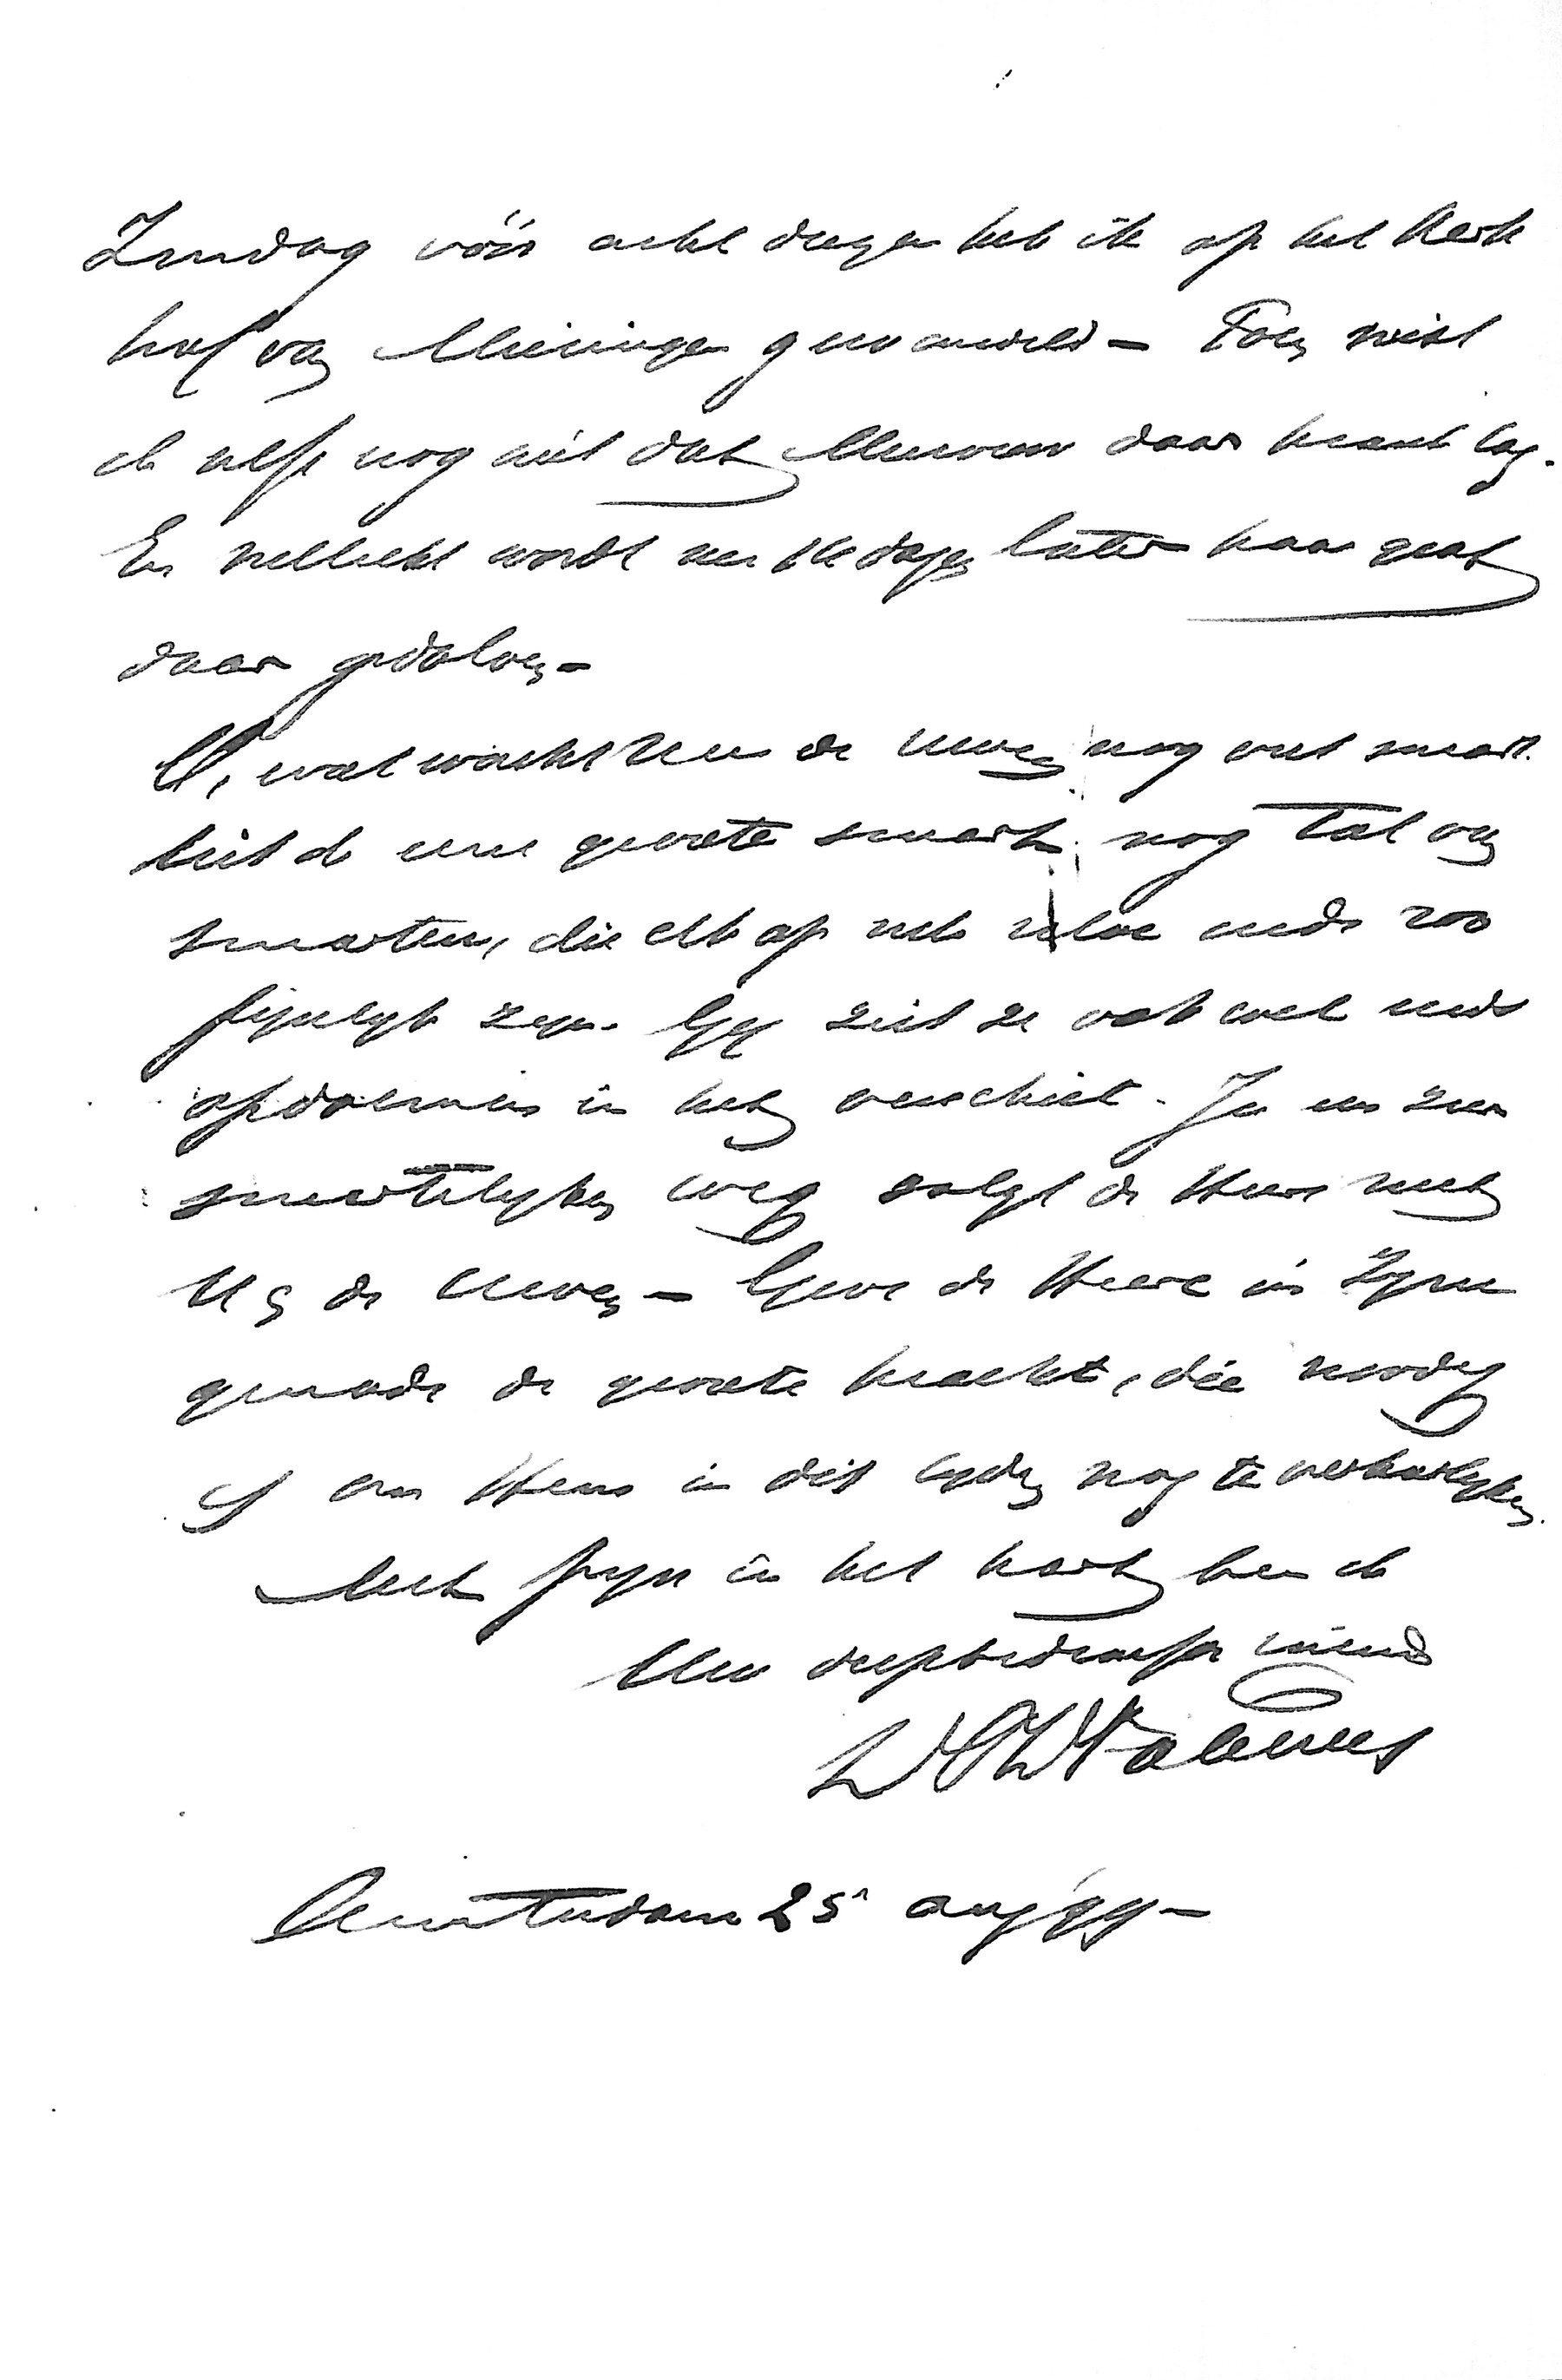 Zondag vóór acht dagen heb ik op het Kerk
hof van Meiringen gewandeld – Toen wist
ik zelfs nog niet dat Mevrouw daar krank lag.
En wellicht wordt dagen later haar graf
daar gedolven –
O, wat wacht U en de uwen nog veel smart.
Uit de eene groote smart nog tal van
smarten, die elk op zich zelve reeds zoo
pijnlijk zijn. Gij ziet ze ook wel reeds
opdoemen in het verschiet. In een zeer
smartelijken weg volgt de Heere met
U en de uwen – Geve de Heere in Zijne
genade de groote kracht, die noodig
is om Hem in dit lijden nog te verheerlijken.
Met pijn in het hart ben ik
Uw diepbedroefde vriend
Amsterdam 25 aug '99 –